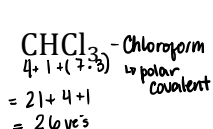 CHCl₃ - Chloroform
4+ 1+(7·3) ↳ polar
covalent
= 21+4+1
= 26 ve's